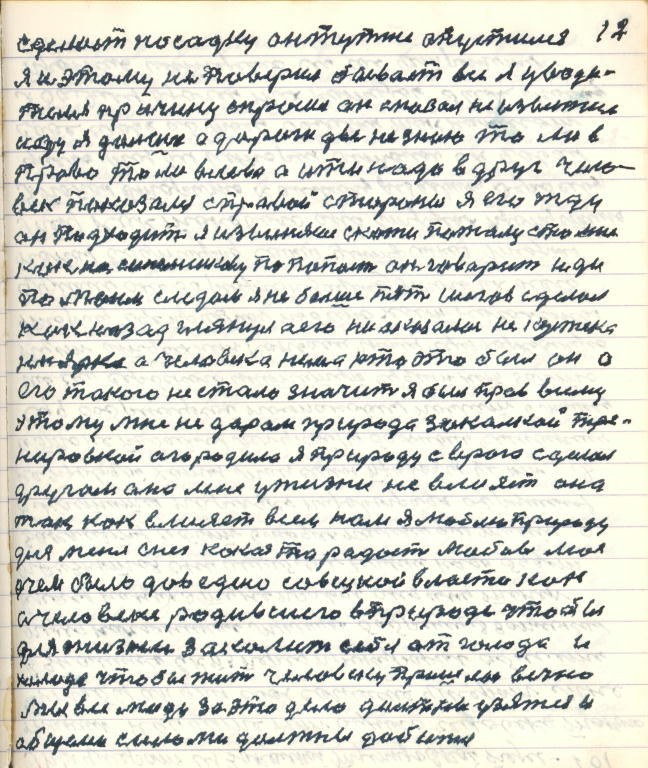 12
сделат посадку он тутже опустился
я и этому не поверил бывает все я уводи-
теля причину спросил он сказал не известно
иду я дальше а дороги две не знаю то ли в
право то ли влево а ити надо вдруг чело-
век показался с правой стороны я его жду
он подходит я извиняюсь скажи пожалуста мне
как на попопал он говорит иди
по моим следам я не больше пят шагов сделал
как назад глянул а его не оказалос не кужена
ни ярка а человека нема кто это был он а
его такого не стало значит я был прав всему
этому мне не даром природа закалкой тре-
нировкой огородила я природу с врага сделал
другам она мне у жизни не влияет она
так как влияет всем нам я люблю природу
для меня снег какая та радост любов моя
о чем было доведено совецкой власти как
о человеке родившего в природе чтобы
для жизни закалит себя от голода и
холода чтобы жит человеку пришлы вечно
мы все люди за это дело должны узятся и
общеми силоми должны добится